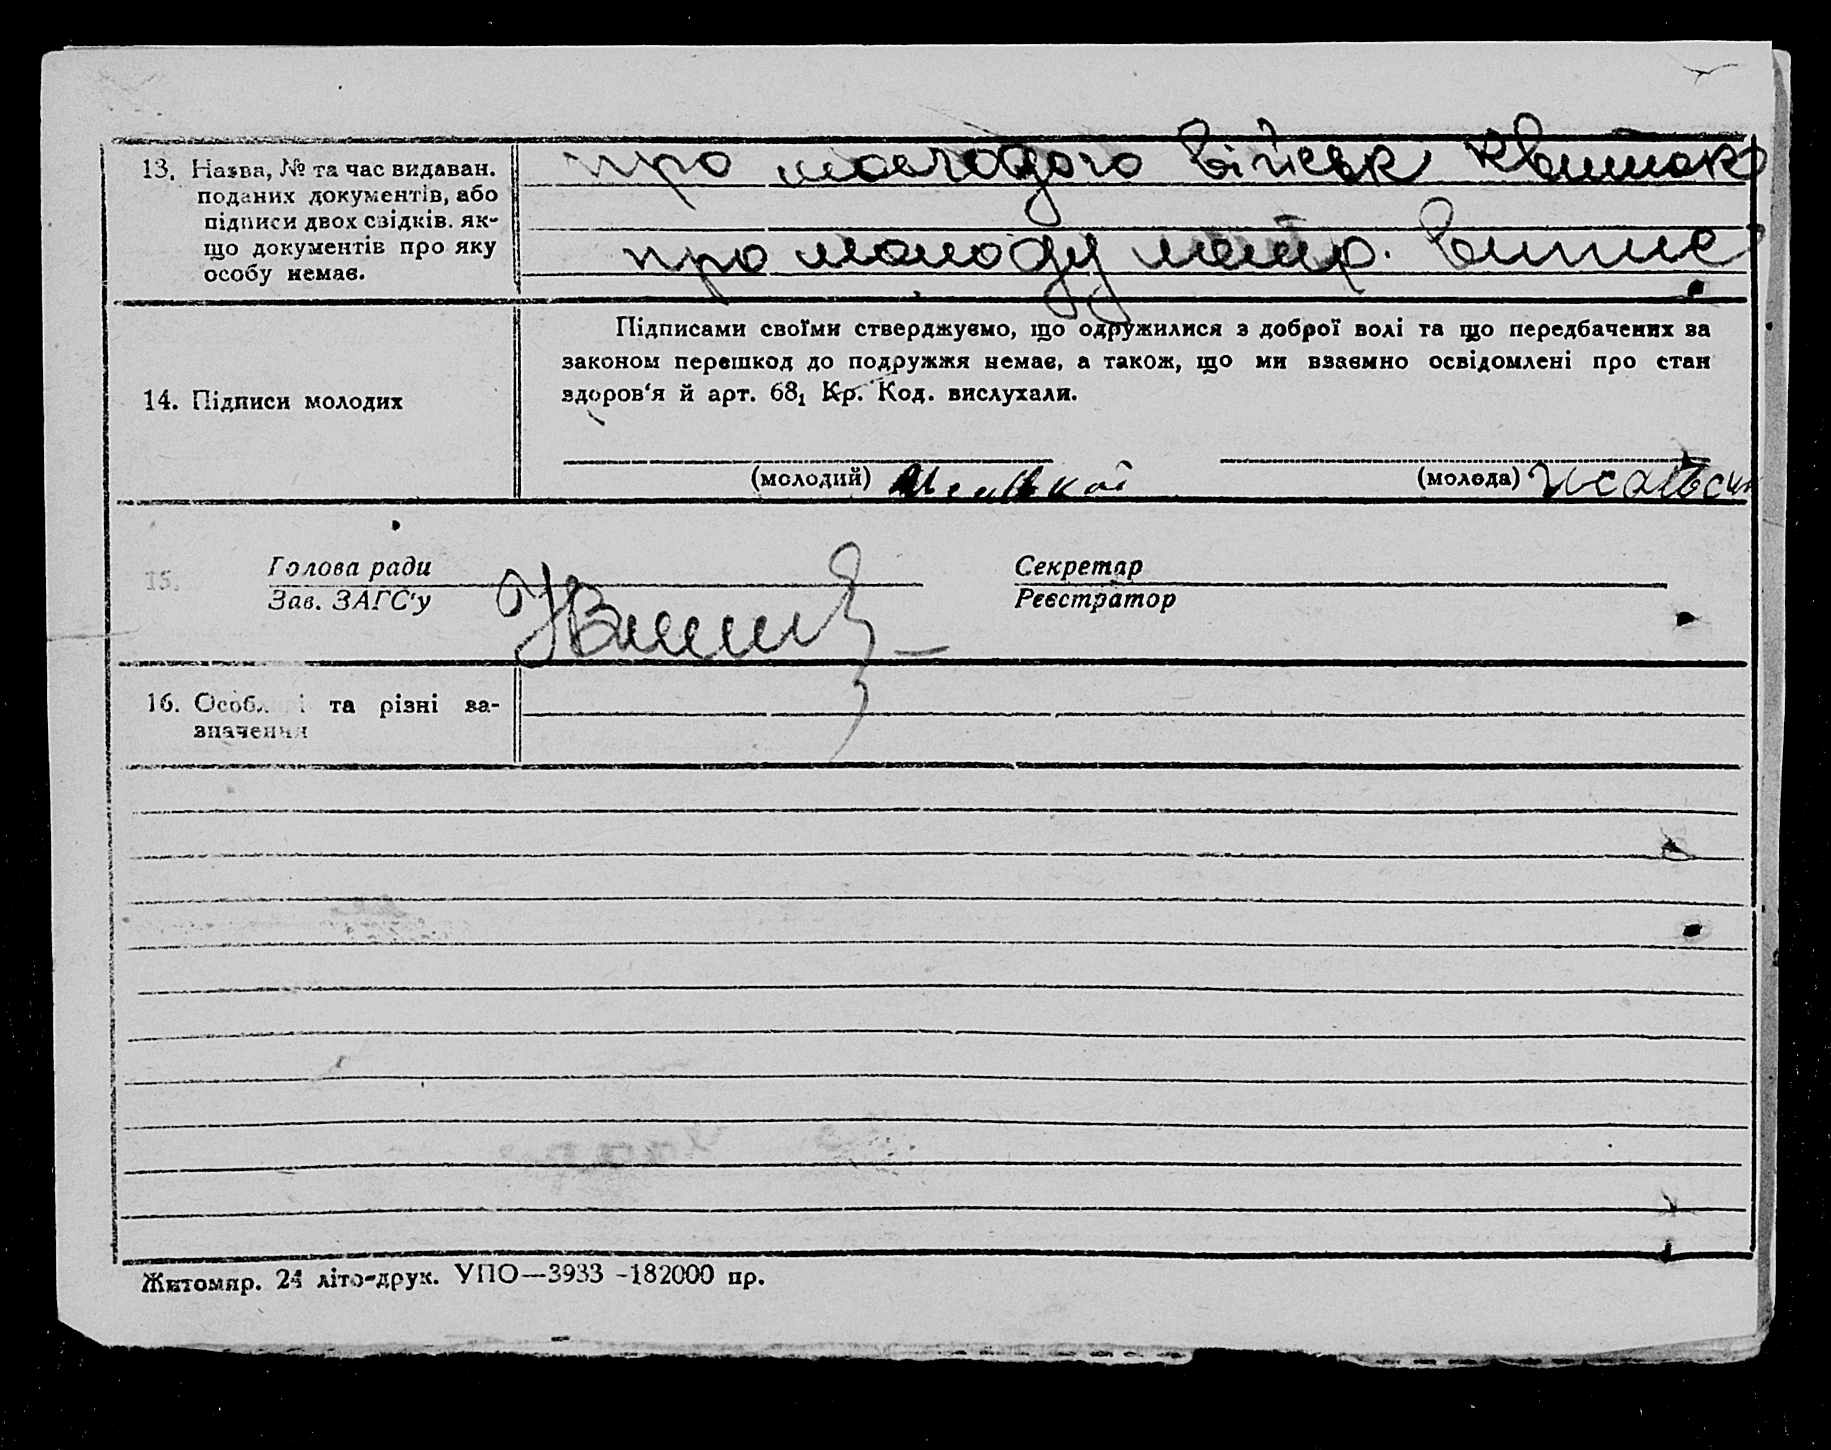 13. Назва, № та час видаван.
поданих документів, або
підписи двох свідків. як-
що документів про яку
особу немає.
про молодого військ квиток
про молоду метр. випис
14. Підписи молодих
Підписами своїми стверджуємо, що одружилися з доброї волі та що передбачених за
законом перешкод до подружжя немає, а також, що ми взаємно освідомлені про стан
здоров'я й арт. 68₁ Кр. Код. вислухали.
(молодий)
(молода)
15. Голова ради
Зав. ЗАГС'у
Секретар
Реєстратор
16. Особливі та різні за-
значення
Житомир. 24 літо-друк. УПО—3933 -182000 пр.